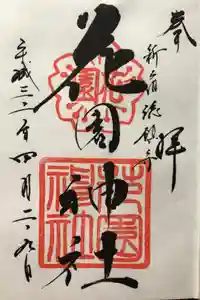 奉拝
新宿総鎮守
花園神社
花園神社
平成三十一年四月二十九日